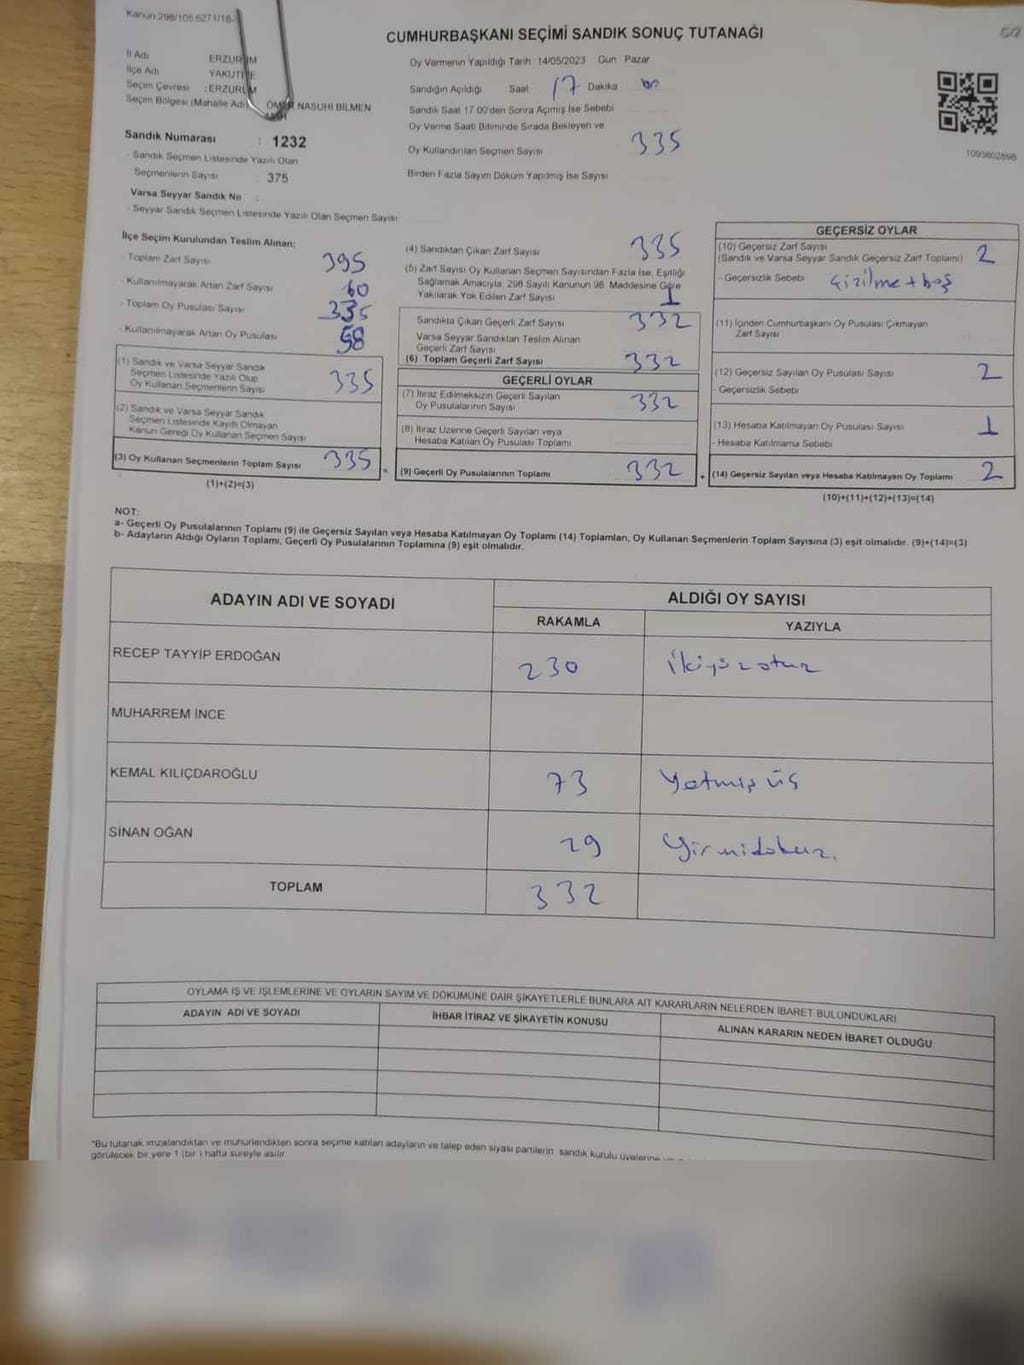 Kanun:298/105,627/1/18-
CUMHURBAŞKANI SEÇİMİ SANDIK SONUÇ TUTANAĞI
İl Adı ERZURUM
İlçe Adı YAKUTİYE
Seçim Çevresi :ERZURUM
Seçim Bölgesi (Mahalle Adı) ÖMER NASUHİ BİLMEN
Oy Vermenin Yapıldığı Tarih 14/05/2023 Gün Pazar
Sandığın Açıldığı Saat 17 Dakika
Sandık Saat 17.00'den Sonra Açımış İse Sebebi
Oy Verme Saati Bitiminde Sırada Bekleyen ve
Oy Kullandırılan Seçmen Sayısı 335
Birden Fazla Sayım Döküm Yapılmış İse Sayısı
1093802898
Sandık Numarası : 1232
- Sandık Seçmen Listesinde Yazılı Olan
Seçmenlerin Sayısı : 375
Varsa Seyyar Sandık No :
- Seyyar Sandık Seçmen Listesinde Yazılı Olan Seçmen Sayısı
İlçe Seçim Kurulundan Teslim Alınan;
- Toplam Zarf Sayısı 395
- Kullanılmayarak Artan Zarf Sayısı 60
- Toplam Oy Pusulası Sayısı 335
- Kullanılmayarak Artan Oy Pusulası 58
(1) Sandık ve Varsa Seyyar Sandık
Seçmen Listesinde Yazılı Olup
Oy Kullanan Seçmenlerin Sayısı 335
(2) Sandık ve Varsa Seyyar Sandık
Seçmen Listesinde Kayıtlı Olmayan
Kanun Gereği Oy Kullanan Seçmen Sayısı
(3) Oy Kullanan Seçmenlerin Toplam Sayısı 335 =
(1)+(2)=(3)
(4) Sandıktan Çıkan Zarf Sayısı 335
(5) Zarf Sayısı Oy Kullanan Seçmen Sayısından Fazla İse, Eşitliği
Sağlamak Amacıyla, 298 Sayılı Kanunun 98. Maddesine Göre
Yakılarak Yok Edilen Zarf Sayısı 1
Sandıkta Çıkan Geçerli Zarf Sayısı 332
Varsa Seyyar Sandıktan Teslim Alınan
Geçerli Zarf Sayısı
(6) Toplam Geçerli Zarf Sayısı 332
GEÇERLİ OYLAR
(7) İtiraz Edilmeksizin Geçerli Sayılan
Oy Pusulalarının Sayısı 332
(8) İtiraz Üzerine Geçerli Sayılan veya
Hesaba Katılan Oy Pusulası Toplamı
(9) Geçerli Oy Pusulalarının Toplamı 332 +
GEÇERSİZ OYLAR
(10) Geçersiz Zarf Sayısı
(Sandık ve Varsa Seyyar Sandık Geçersiz Zarf Toplamı) 2
- Geçersizlik Sebebi Çizilme+boş
(11) İçinden Cumhurbaşkanı Oy Pusulası Çıkmayan
Zarf Sayısı
(12) Geçersiz Sayılan Oy Pusulası Sayısı 2
- Geçersizlik Sebebi
(13) Hesaba Katılmayan Oy Pusulası Sayısı 1
- Hesaba Katılmama Sebebi
(14) Geçersiz Sayılan veya Hesaba Katılmayan Oy Toplamı 2
(10)+(11)+(12)+(13)=(14)
NOT:
a- Geçerli Oy Pusulalarının Toplamı (9) ile Geçersiz Sayılan veya Hesaba Katılmayan Oy Toplamı (14) Toplamları, Oy Kullanan Seçmenlerin Toplam Sayısına (3) eşit olmalıdır. (9)+(14)=(3)
b- Adayların Aldığı Oyların Toplamı, Geçerli Oy Pusulalarının Toplamına (9) eşit olmalıdır.
ADAYIN ADI VE SOYADI ALDIĞI OY SAYISI
RAKAMLA YAZIYLA
RECEP TAYYİP ERDOĞAN 230 İkiyüzotuz
MUHARREM İNCE
KEMAL KILIÇDAROĞLU 73 Yetmiş üç
SİNAN OĞAN 29 Yirmidokuz.
TOPLAM 332
OYLAMA İŞ VE İŞLEMLERİNE VE OYLARIN SAYIM VE DÖKÜMÜNE DAİR ŞİKAYETLERLE BUNLARA AİT KARARLARIN NELERDEN İBARET BULUNDUKLARI
ADAYIN ADI VE SOYADI İHBAR İTİRAZ VE ŞİKAYETİN KONUSU ALINAN KARARIN NEDEN İBARET OLDUĞU
*Bu tutanak imzalandıktan ve mühürlendikten sonra seçime katılan adayların ve talep eden siyasi partilerin sandık kurulu üyelerine
görülecek bir yere 1 (bir ) hafta süreyle asılır